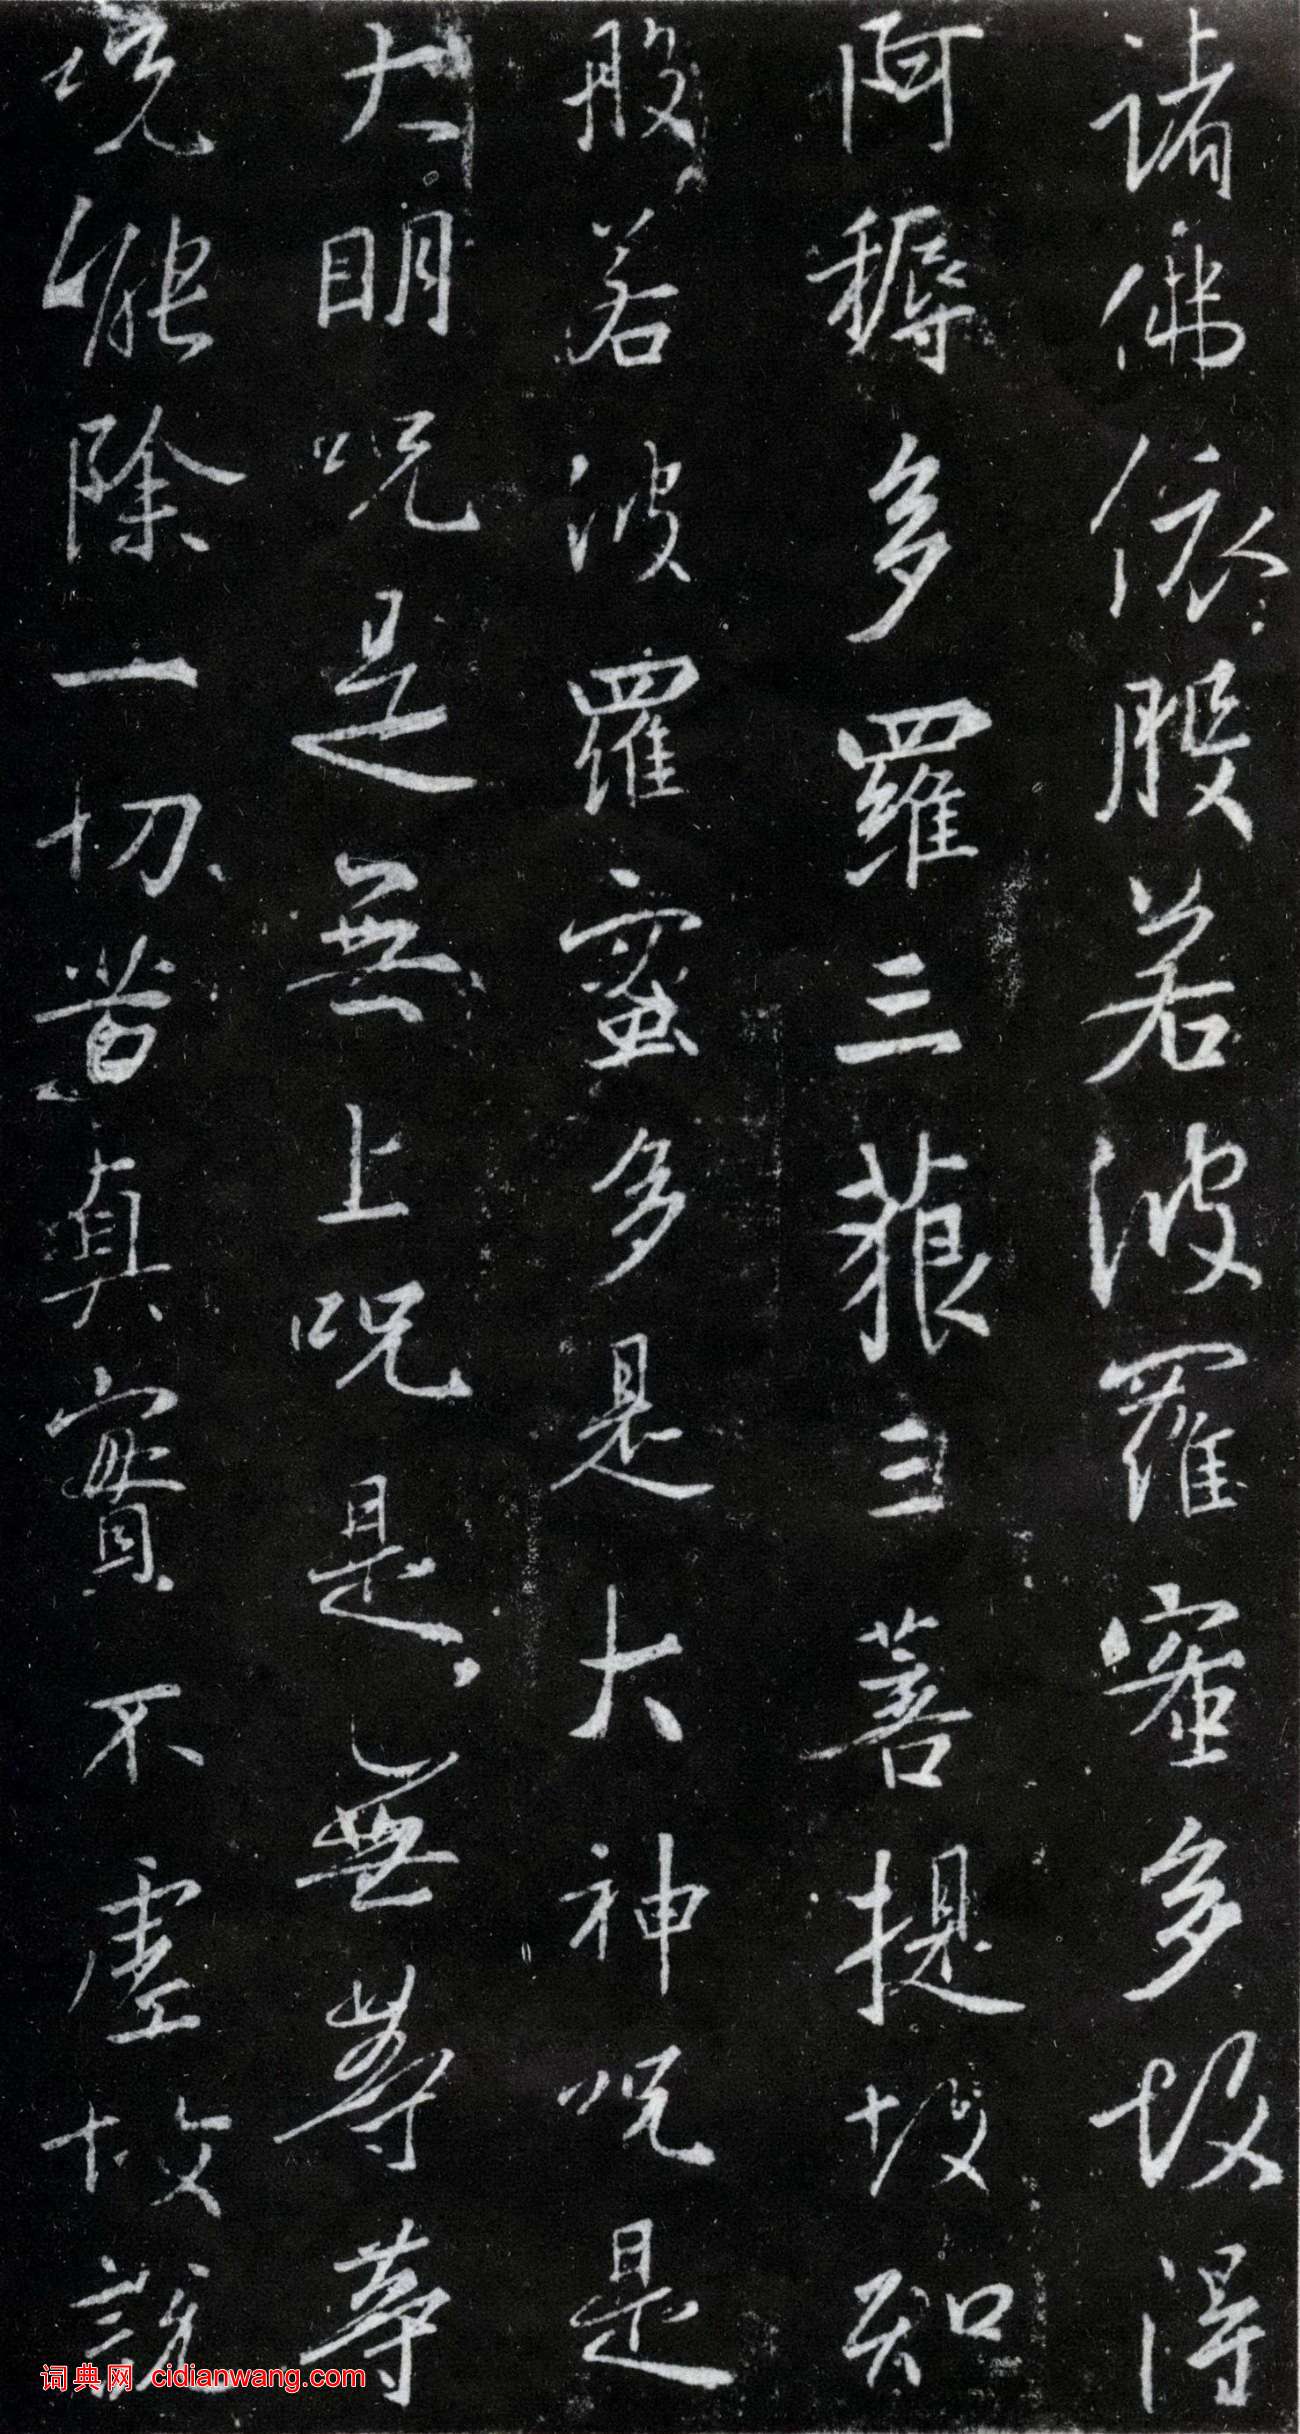 諸佛依般若波羅蜜多故得
阿耨多羅三藐三菩提故知
般若波羅蜜多是大神咒是
大明咒是無上咒是無等等
咒能除一切苦真實不虛故說
词典网 cidianwang.com